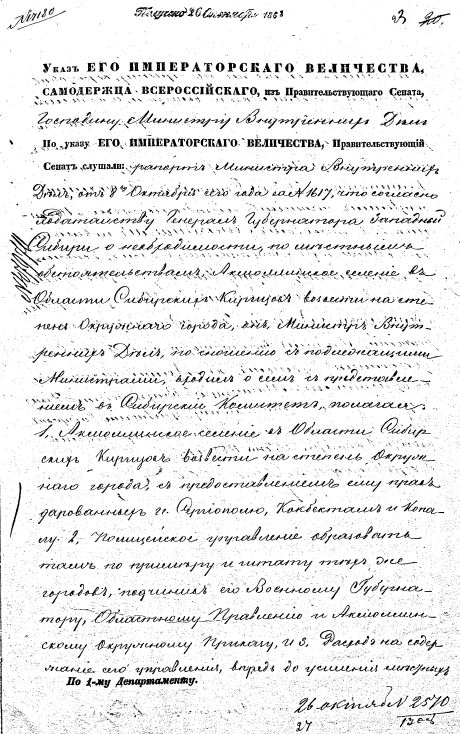 Указъ ЕГО ИМПЕРАТОРСКАГО ВЕЛИЧЕСТВА,
САМОДЕРЖЦА ВСЕРОССІЙСКАГО, изъ Правительствующаго Сената,
Господину Министру Внутреннихъ Дѣлъ
По указу ЕГО ИМПЕРАТОРСКАГО ВЕЛИЧЕСТВА, Правительствующій
Сенатъ слушали: рапортъ Министра Внутреннихъ
Дѣлъ, отъ 8го Октября сего года за № 1617, что согласно
ходатайству Генералъ Губернатора Западной
Сибири о необходимости, по мѣстнымъ
обстоятельствамъ, Акмоллинское селеніе въ
Области Сибирскихъ Киргизовъ возвести на сте-
пень Окружнаго города, онъ, Министръ Внут-
реннихъ Дѣлъ, по сношенію съ подлежащими
Министрами, входилъ о семъ съ представле-
ніемъ въ Сибирскій Комитетъ, полагая:
1, Акмоллинское селеніе въ Области Сибир-
скихъ Киргизовъ возвести на степень Окруж-
наго города, съ предоставленіемъ ему правъ
дарованныхъ г. Аягозу, Кокбектамъ и Копа-
лу 2, Полицейское управленіе образовать
тамъ по примѣру и штату тѣхъ же
городовъ, подчинивъ его Военному Губерна-
тору, Областному Правленію и Акмоллин-
скому Окружному Приказу, и 3, Расходъ на содер-
жаніе сего управленія, впредь до усиленія мѣстныхъ
По 1-му Департаменту.
26 октяб № 2570
27